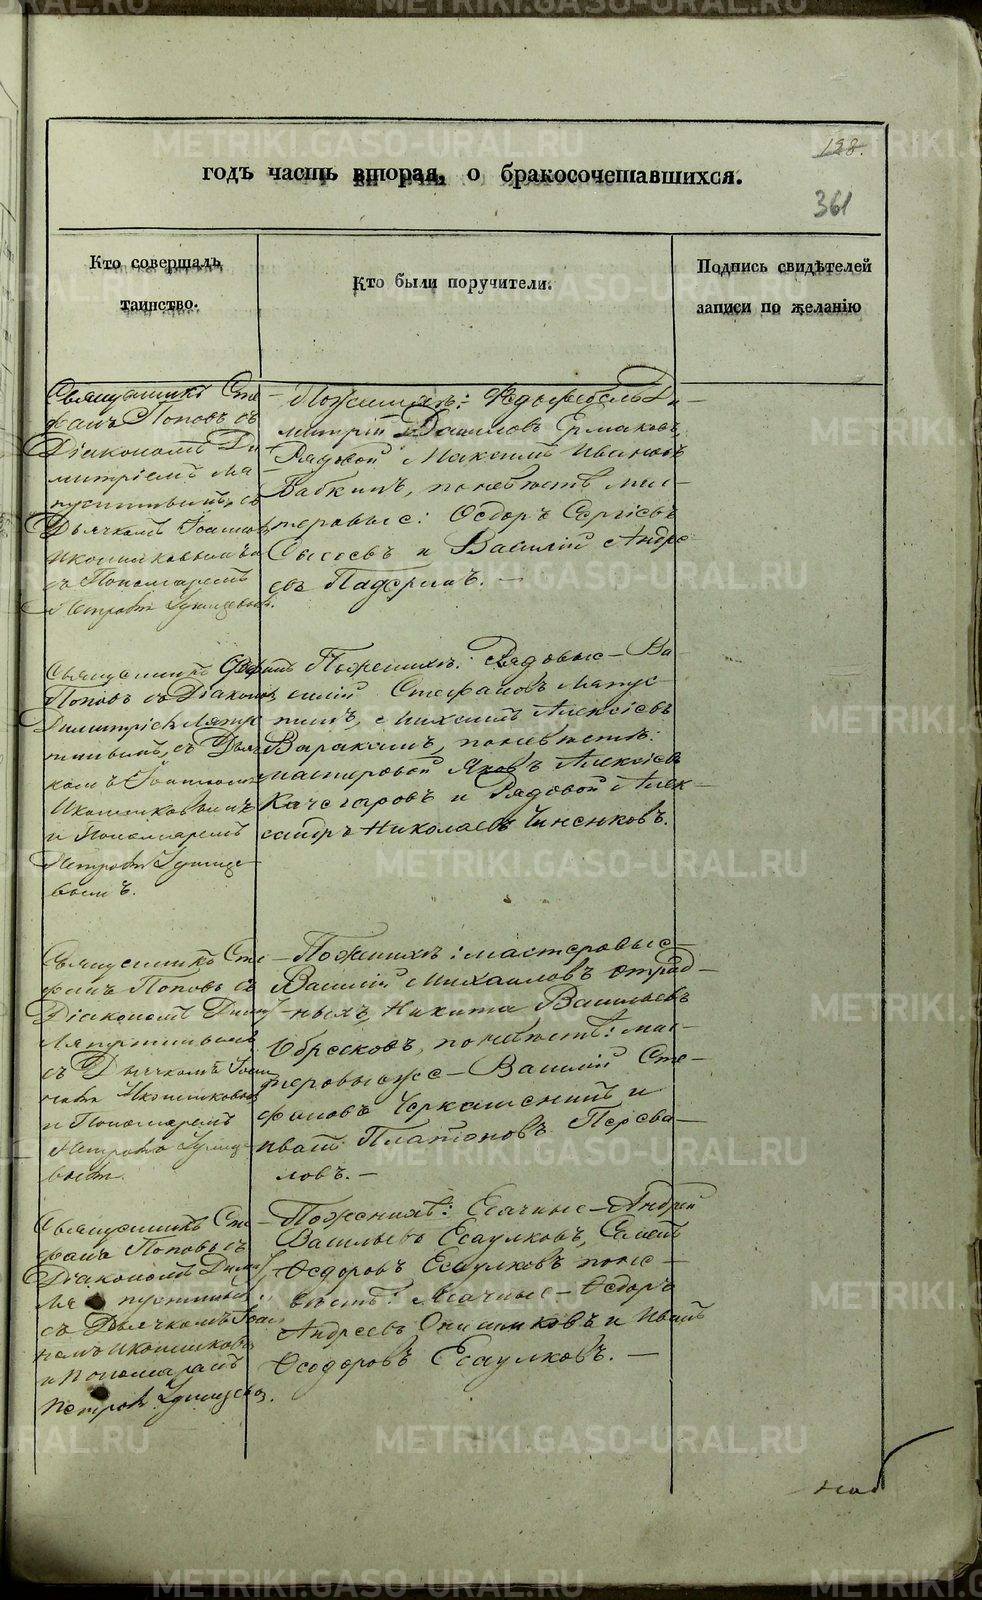 198.
годъ часть вторая, о бракосочетавшихся.
361
Кто совершалъ
таинство.
Кто были поручители.
Подпись свидѣтелей
записи по желанію
Священникъ Сте-
фанъ Поповъ съ
Діакономъ Ди
митріемъ Ля
пустинымъ, съ
Дьячкомъ Іоанном
Иконниковымъ и
съ Пономаремъ
Петромъ
По женихѣ:
митрій Даниловъ Ермаковъ,
Рядовой Максимъ Ивановъ
Бабкинъ, по невѣстѣ мас-
теровые: Ѳедоръ Сергіевъ
Сысоевъ и Василій Андре
евъ Падеринъ. —
Священникъ Стефанъ
Поповъ съ Діакономъ
Димитріемъ Ляпус
тинымъ, съ Дьяч
комъ Іоанномъ
Иконниковымъ
и Пономаремъ
Петромъ
вымъ.
По женихѣ: Рядовые — Ва
силій Стефановъ Ляпус
тинъ, Михаилъ Алексіевъ
Варакинъ, по невѣстѣ:
мастеровой Яковъ Алексіевъ
Качегаровъ и Рядовой Алек-
сандръ Николаевъ
Священникъ Сте
фанъ Поповъ съ
Діакономъ Дими
Ляпустинымъ
съ Дьячкомъ Іоан
номъ Иконниковым
и Пономаремъ
Петромъ
вымъ.
— По женихѣ: мастеровые —
Василій Михаиловъ Отрад-
ныхъ, Никита Васильевъ
Обрѣсковъ, по невѣстѣ: мас-
теровые же — Василій Сте-
фановъ Черкашенинъ и
Иванъ Платоновъ Перева-
ловъ. —
Священникъ Сте
фанъ Поповъ съ
Діакономъ Дими
Ляпустинымъ
съ Дьячкомъ Іоан
номъ Иконников
и Пономаремъ
Петромъ
— По женихѣ: — Андрей
Васильевъ Есаулковъ, Семенъ
Ѳедоровъ Есаулковъ по не-
вѣстѣ: — Ѳедоръ
Андреевъ и Иванъ
Ѳеодоровъ Есаулковъ. —
METRIKI.GASO-URAL.RU